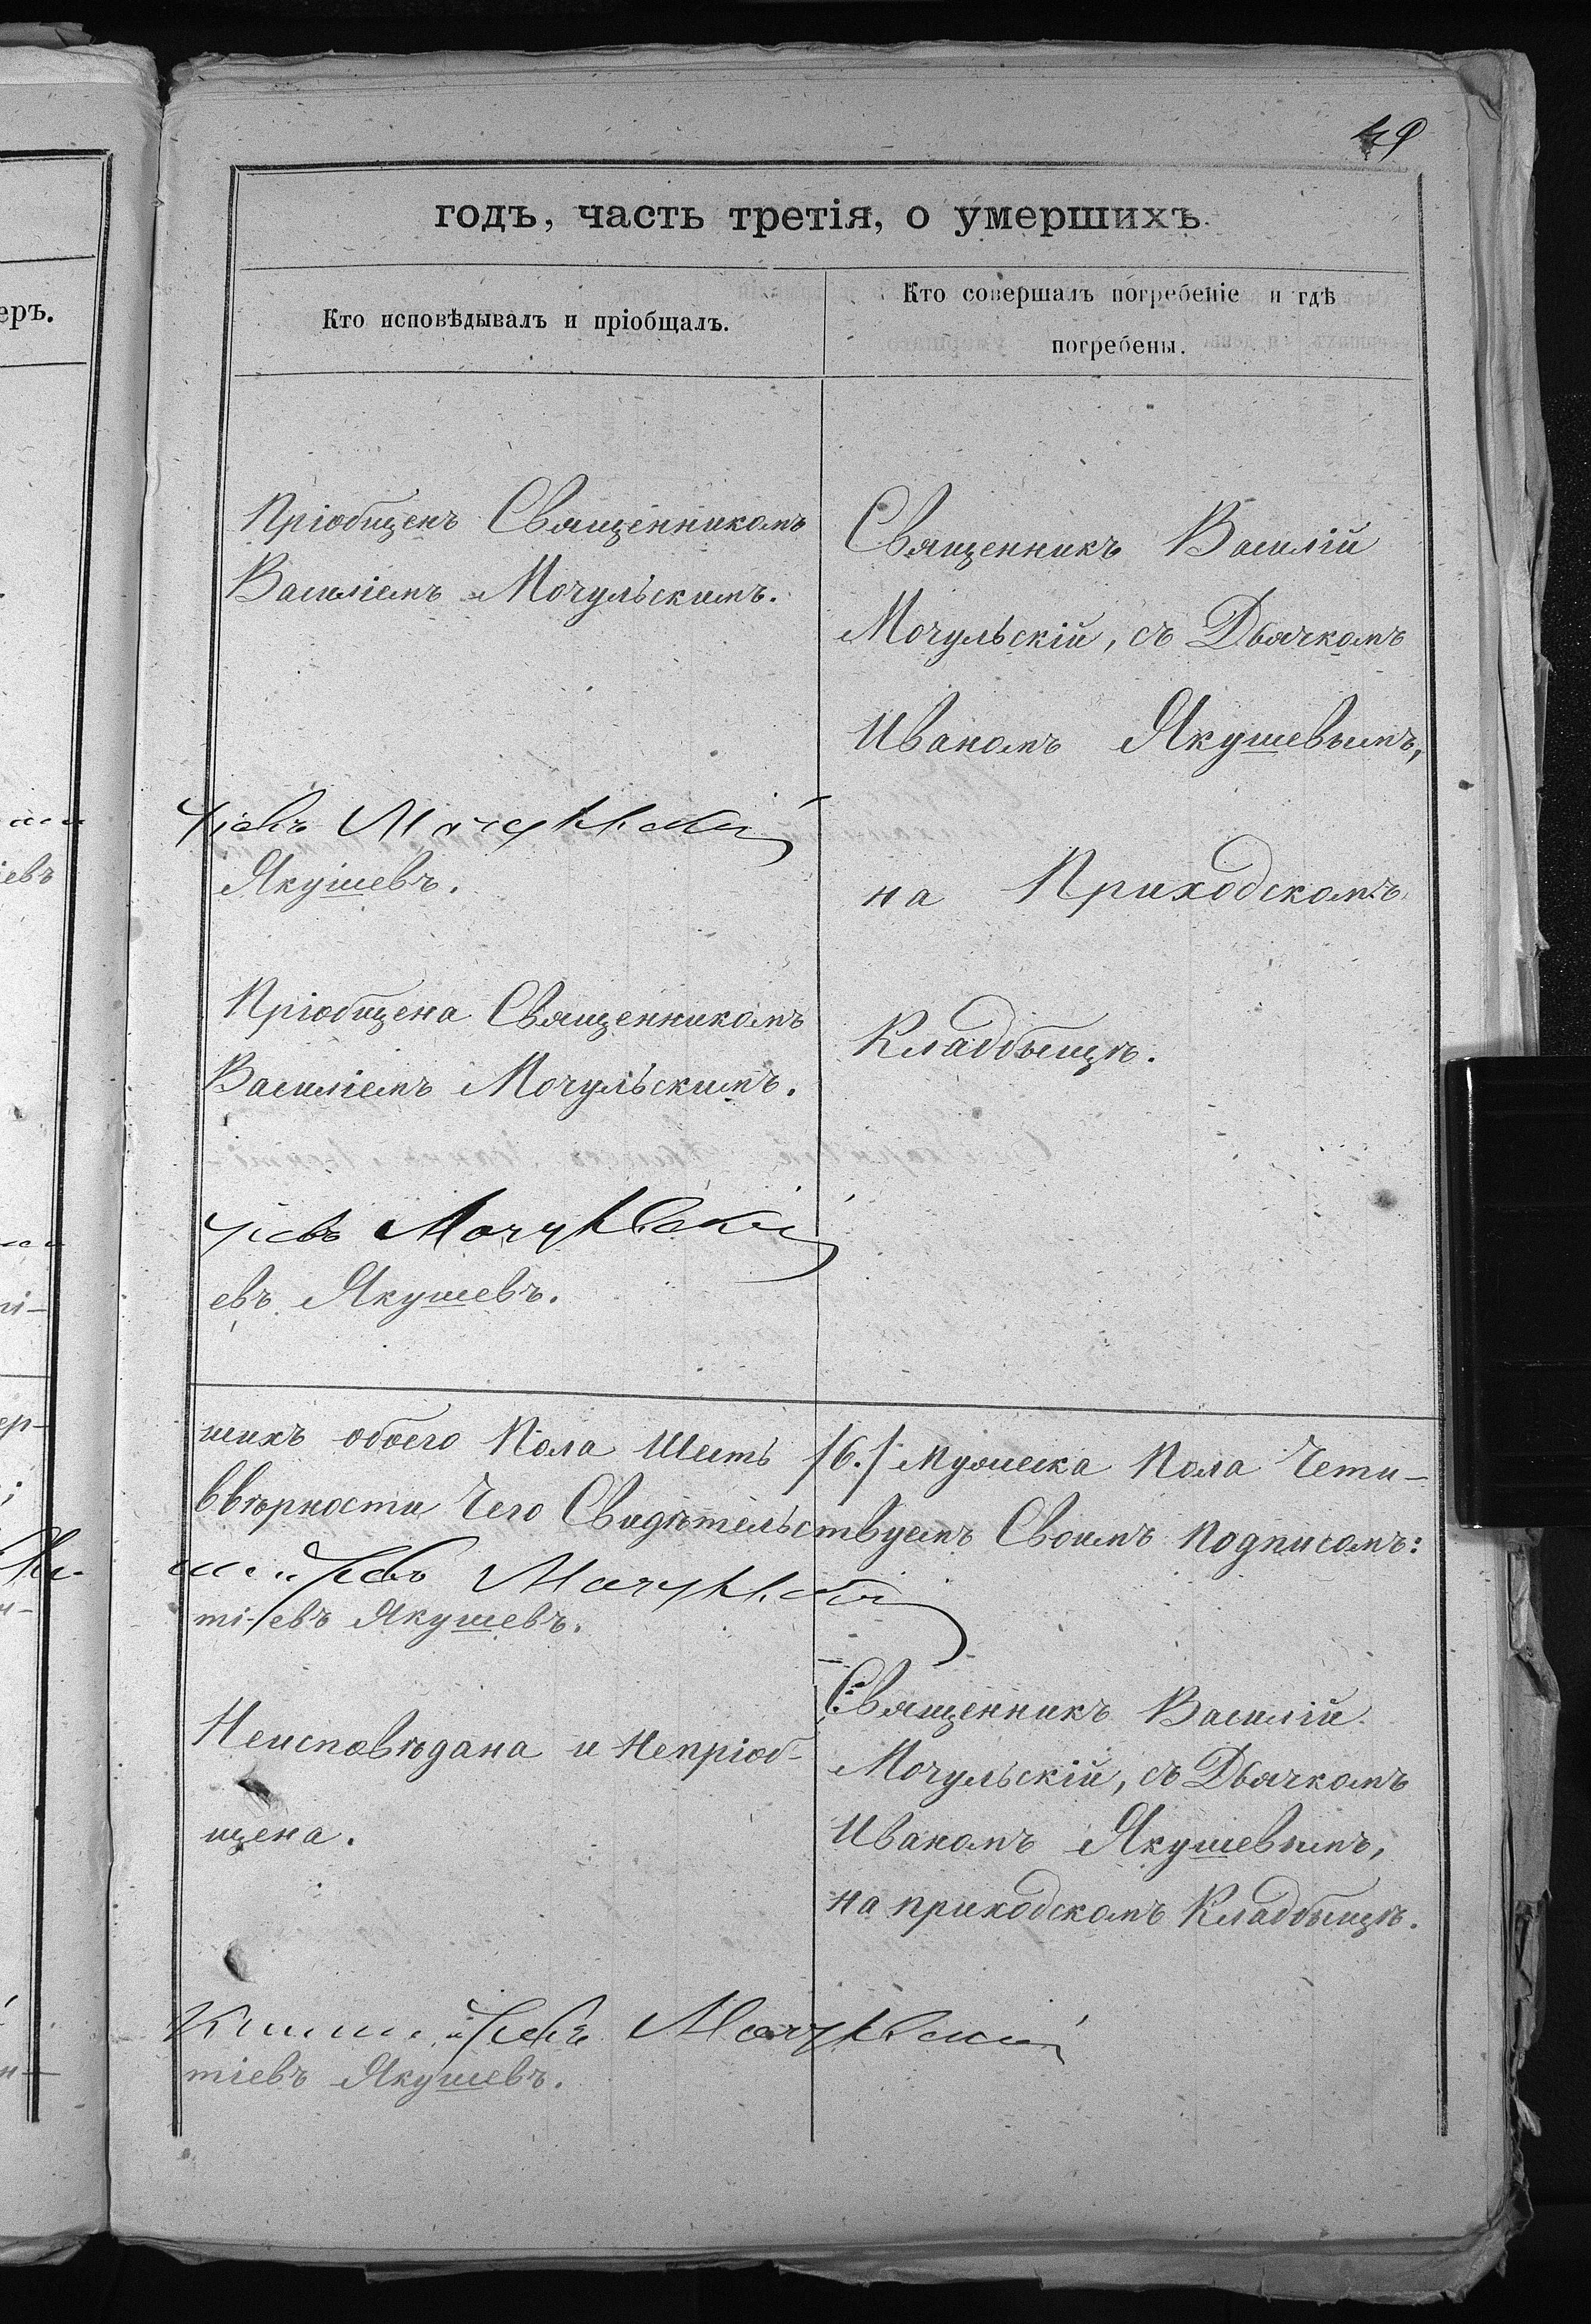 49
годъ, часть третія, о умершихъ
еръ.
Кто исповѣдывалъ и пріобщалъ.
Кто совершалъ погребеніе и гдѣ
погребены.
Пріобщенъ Священникомъ
Василіемъ Мочульскимъ.
Мочульскій
Якушевъ.
Пріобщена Священникомъ
Василіемъ Мочульскимъ.
Мочульскій
евъ Якушевъ.
Священникъ Василій
Мочульскій, съ Дьячкомъ
Иваномъ Якушевымъ,
на Приходскомъ
Кладбыщѣ.
шихъ обоего Пола Шесть /6./ мужеска Пола Чети-
ввѣрности Чего Свидѣтельствуемъ Своимъ подписомъ:
Мочульскій
тіевъ Якушевъ.
Неисповѣдана и Непріоб-
щена.
Священникъ Василій
Мочульскій, съ Дьячкомъ
Иваномъ Якушевымъ,
на приходскомъ Кладбыщѣ.
Мочульскій
тіевъ Якушевъ.